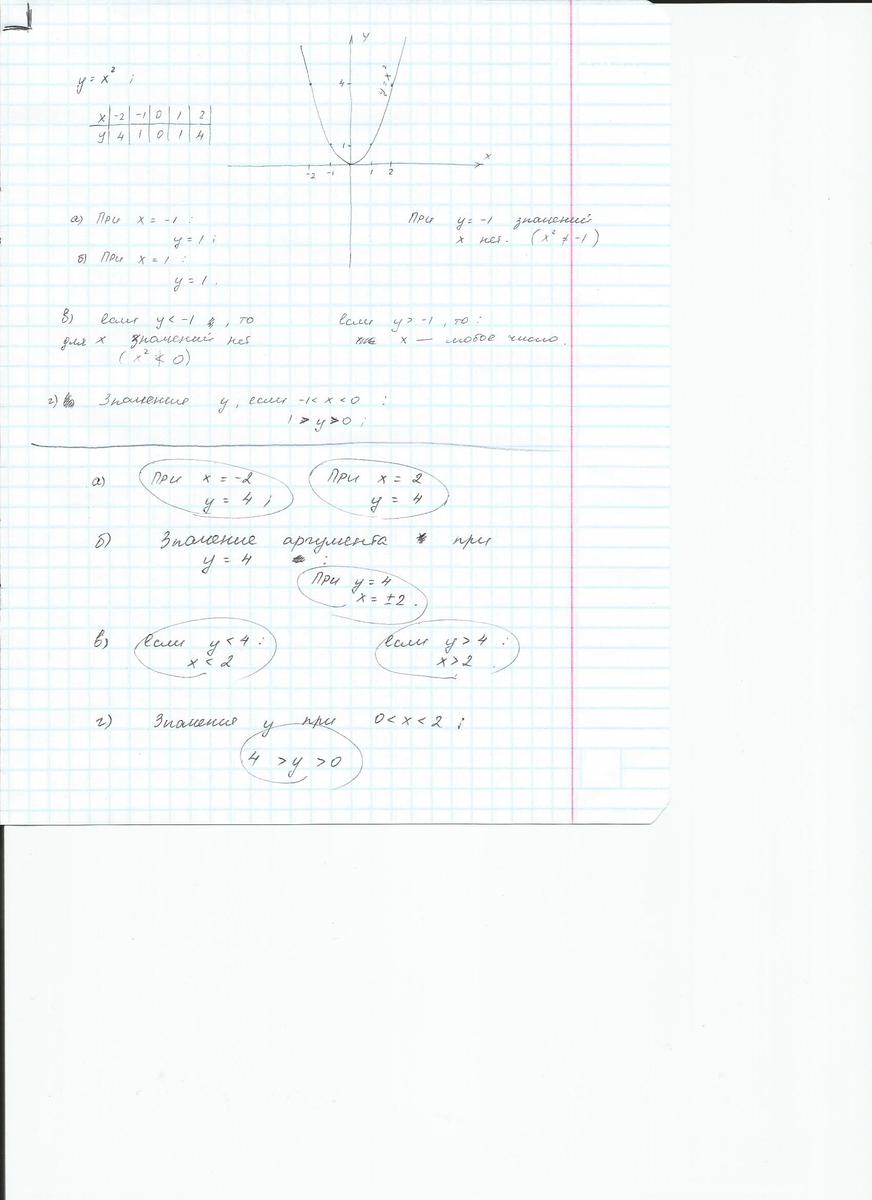 y = x² ;
x -2 -1 0 1 2
y 4 1 0 1 4
y
4
y = x²
1
x
-2 -1 1 2
а) При x = -1 :
y = 1 ;
б) При x = 1 :
y = 1 .
При y = -1 значений
x нет. (x² ≠ -1)
в) Если y < -1 , то
для x значений нет
(x² ≮ 0)
Если y > -1 , то :
x — любое число.
г) Значения y , если -1 < x < 0 :
1 > y > 0 ;
а) При x = -2
y = 4 ;
При x = 2
y = 4
б) Значение аргумента при
y = 4 :
При y = 4
x = ±2 .
в) Если y < 4 :
x < 2
Если y > 4 :
x > 2 .
г) Значения y при 0 < x < 2 ;
4 > y > 0